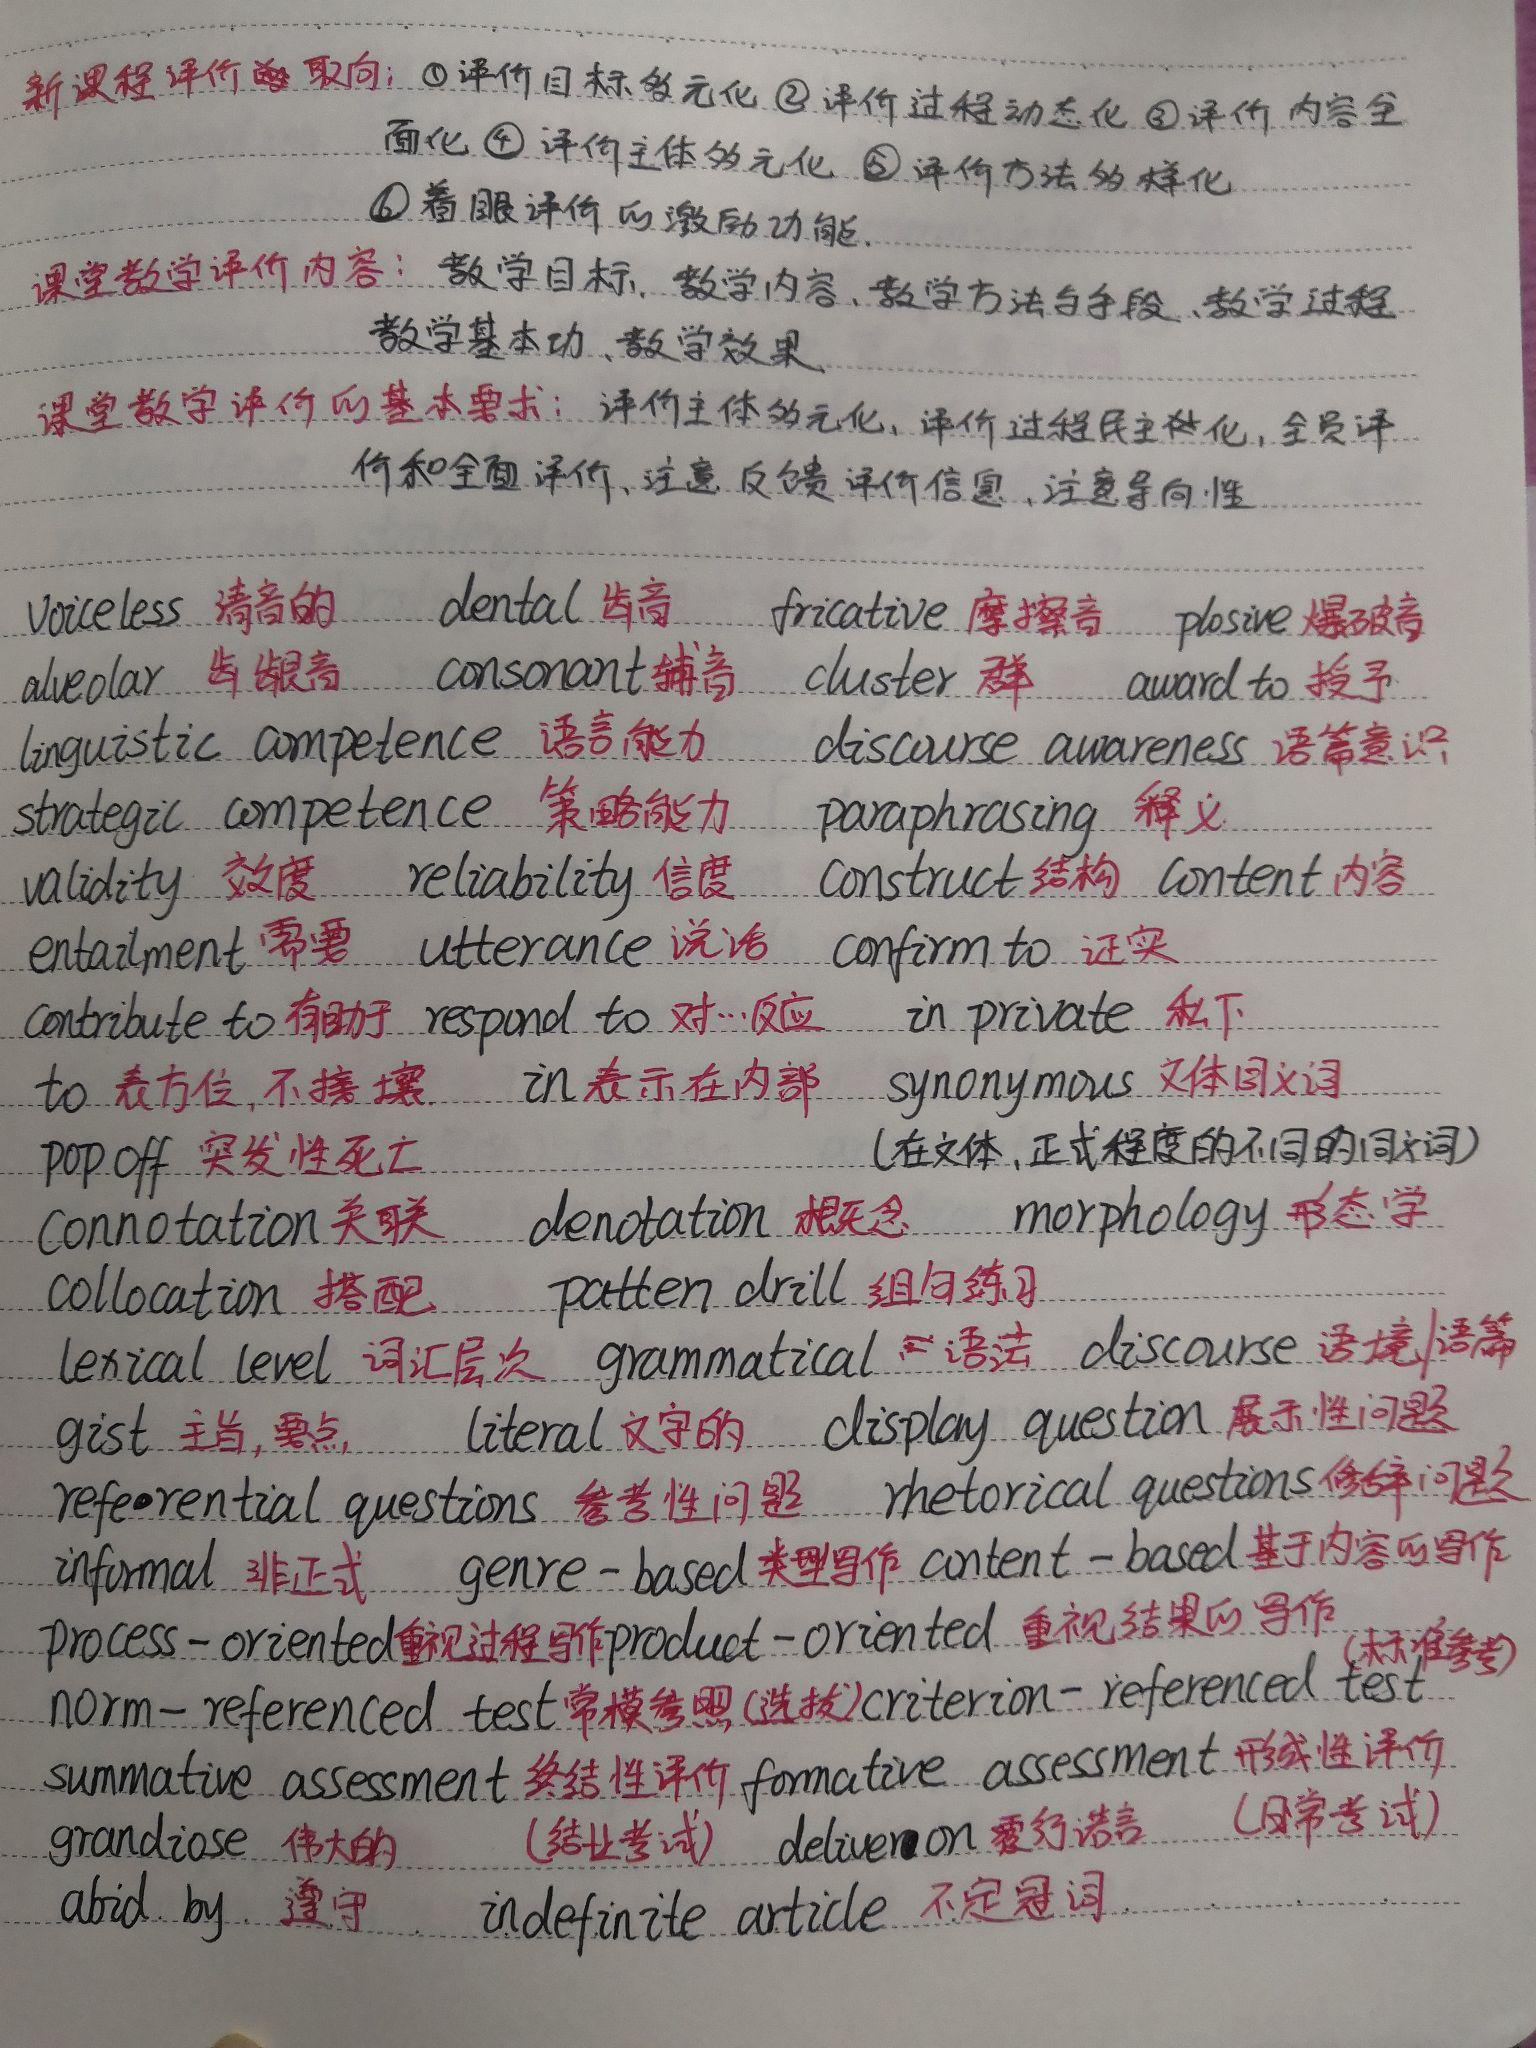 新课程评价的取向：①评价目标多元化 ②评价过程动态化 ③评价内容全
面化 ④评价主体多元化 ⑤评价方法多样化
⑥着眼评价的激励功能.
课堂教学评价内容：教学目标、教学内容、教学方法与手段、教学过程
教学基本功、教学效果
课堂教学评价的基本要求：评价主体多元化、评价过程民主化，全员评
价和全面评价、注意反馈评价信息、注意导向性
voiceless 清音的 dental 齿音 fricative 摩擦音 plosive 爆破音
alveolar 齿龈音 consonant 辅音 cluster 群 award to 授予
linguistic competence 语言能力 discourse awareness 语篇意识
strategic competence 策略能力 paraphrasing 释义
validity 效度 reliability 信度 construct 结构 content 内容
entailment 需要 utterance 说话 confirm to 证实
contribute to 有助于 respond to 对…反应 in private 私下
to 表方位，不接壤 in 表示在内部 synonymous 文体同义词
pop off 突发性死亡 （在文体、正式程度的不同的同义词）
connotation 关联 denotation 概念 morphology 形态学
collocation 搭配 patten drill 组句练习
lexical level 词汇层次 grammatical ~语法 discourse 语境/语篇
gist 主旨，要点 literal 文字的 display question 展示性问题
referential questions 参考性问题 rhetorical questions 修辞问题
informal 非正式 genre-based 类型写作 content-based 基于内容的写作
process-oriented 重视过程写作 product-oriented 重视结果的写作
norm-referenced test 常模参照（选拔） criterion-referenced test （标准参考）
summative assessment 终结性评价 formative assessment 形成性评价
grandiose 伟大的 （结业考试） deliver on 履行诺言 （日常考试）
abid by 遵守 indefinite article 不定冠词